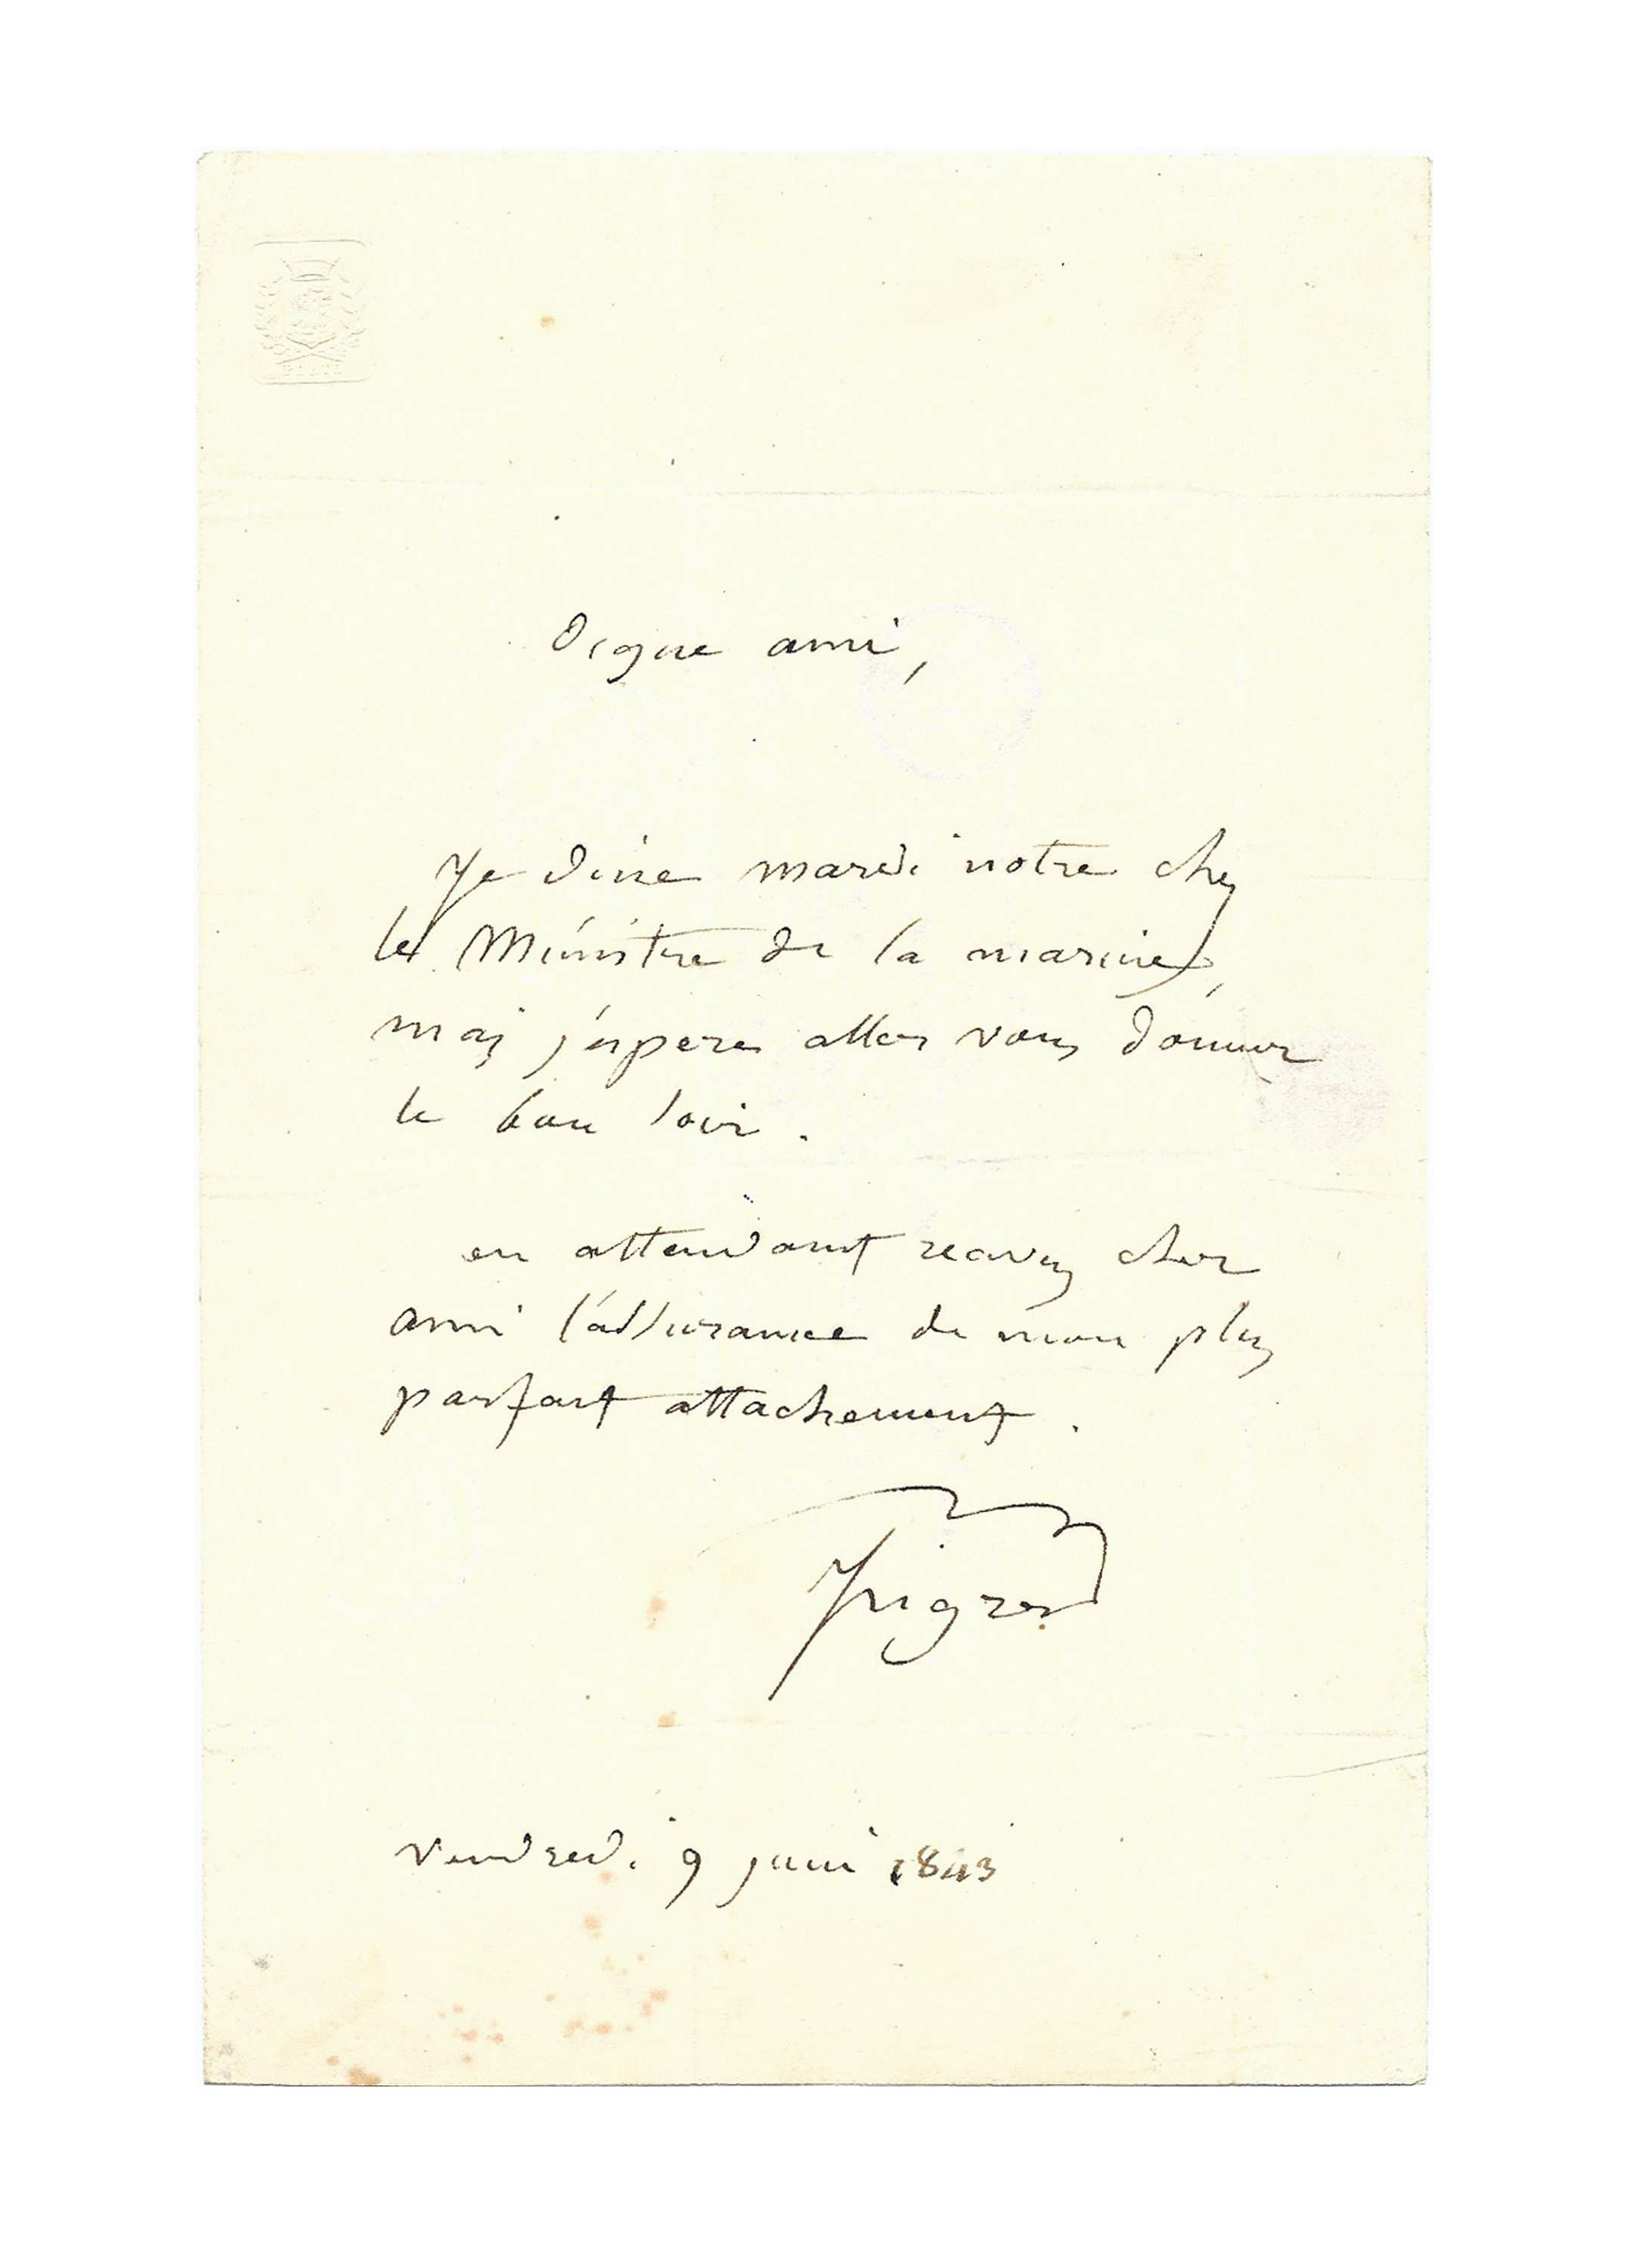 digne ami,
Je dine mardi notre chez
le Ministre de la marine,
mais j'espere aller vous donner
le bon soir.
en attendant recevez cher
ami l'assurance de mon plus
parfait attachement.
vendredi 9 juin 1843